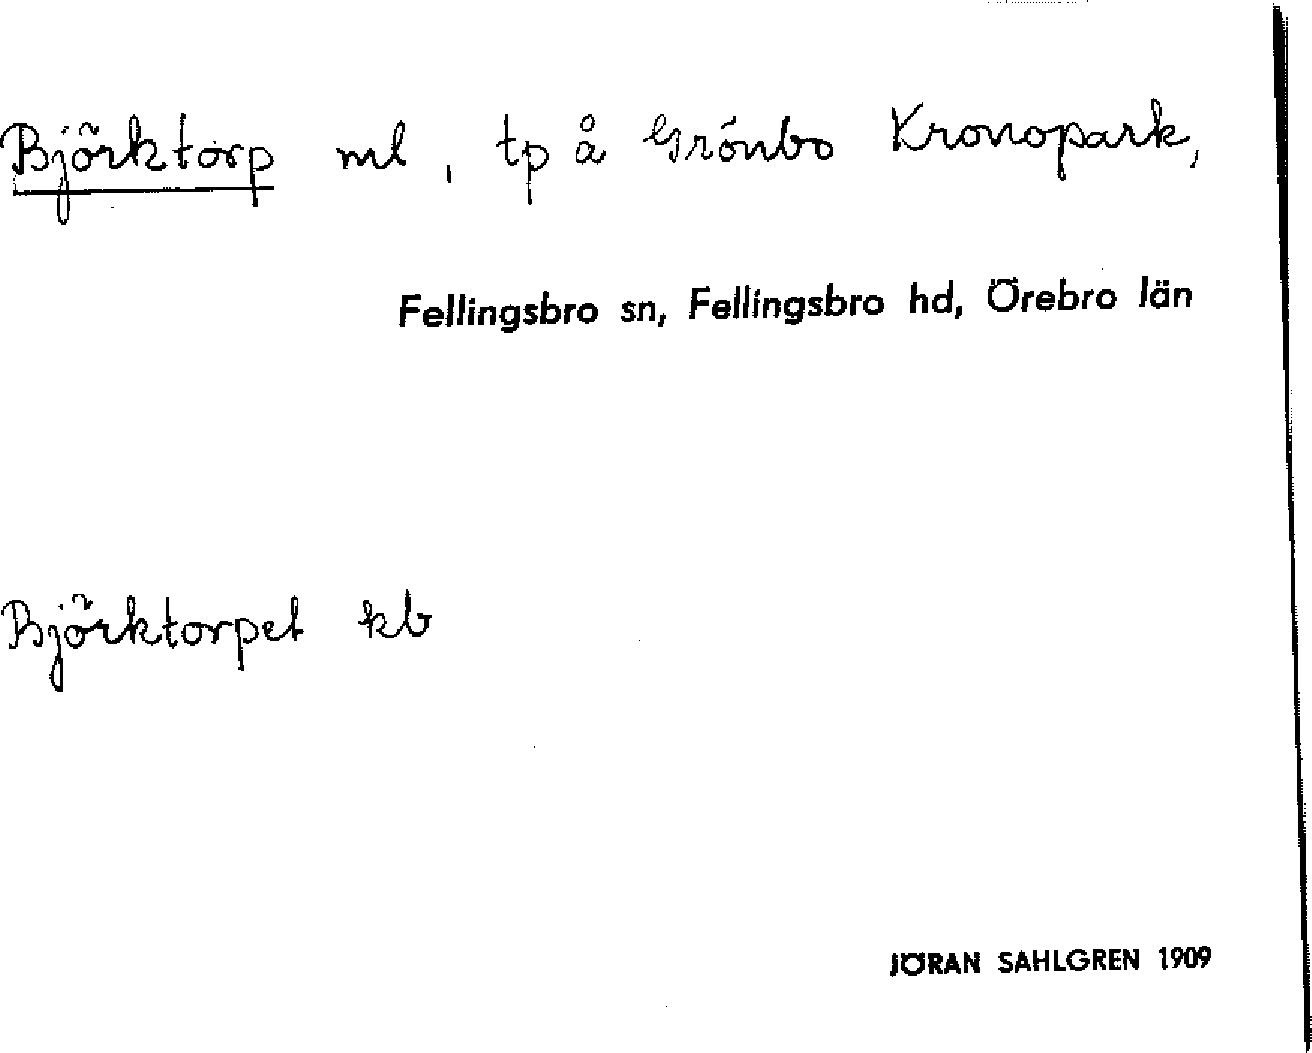 Björktorp ml, tp å Grönbo Kronopark,
Fellingsbro sn, Fellingsbro hd, Örebro län
Björktorpet kb
JÖRAN SAHLGREN 1909